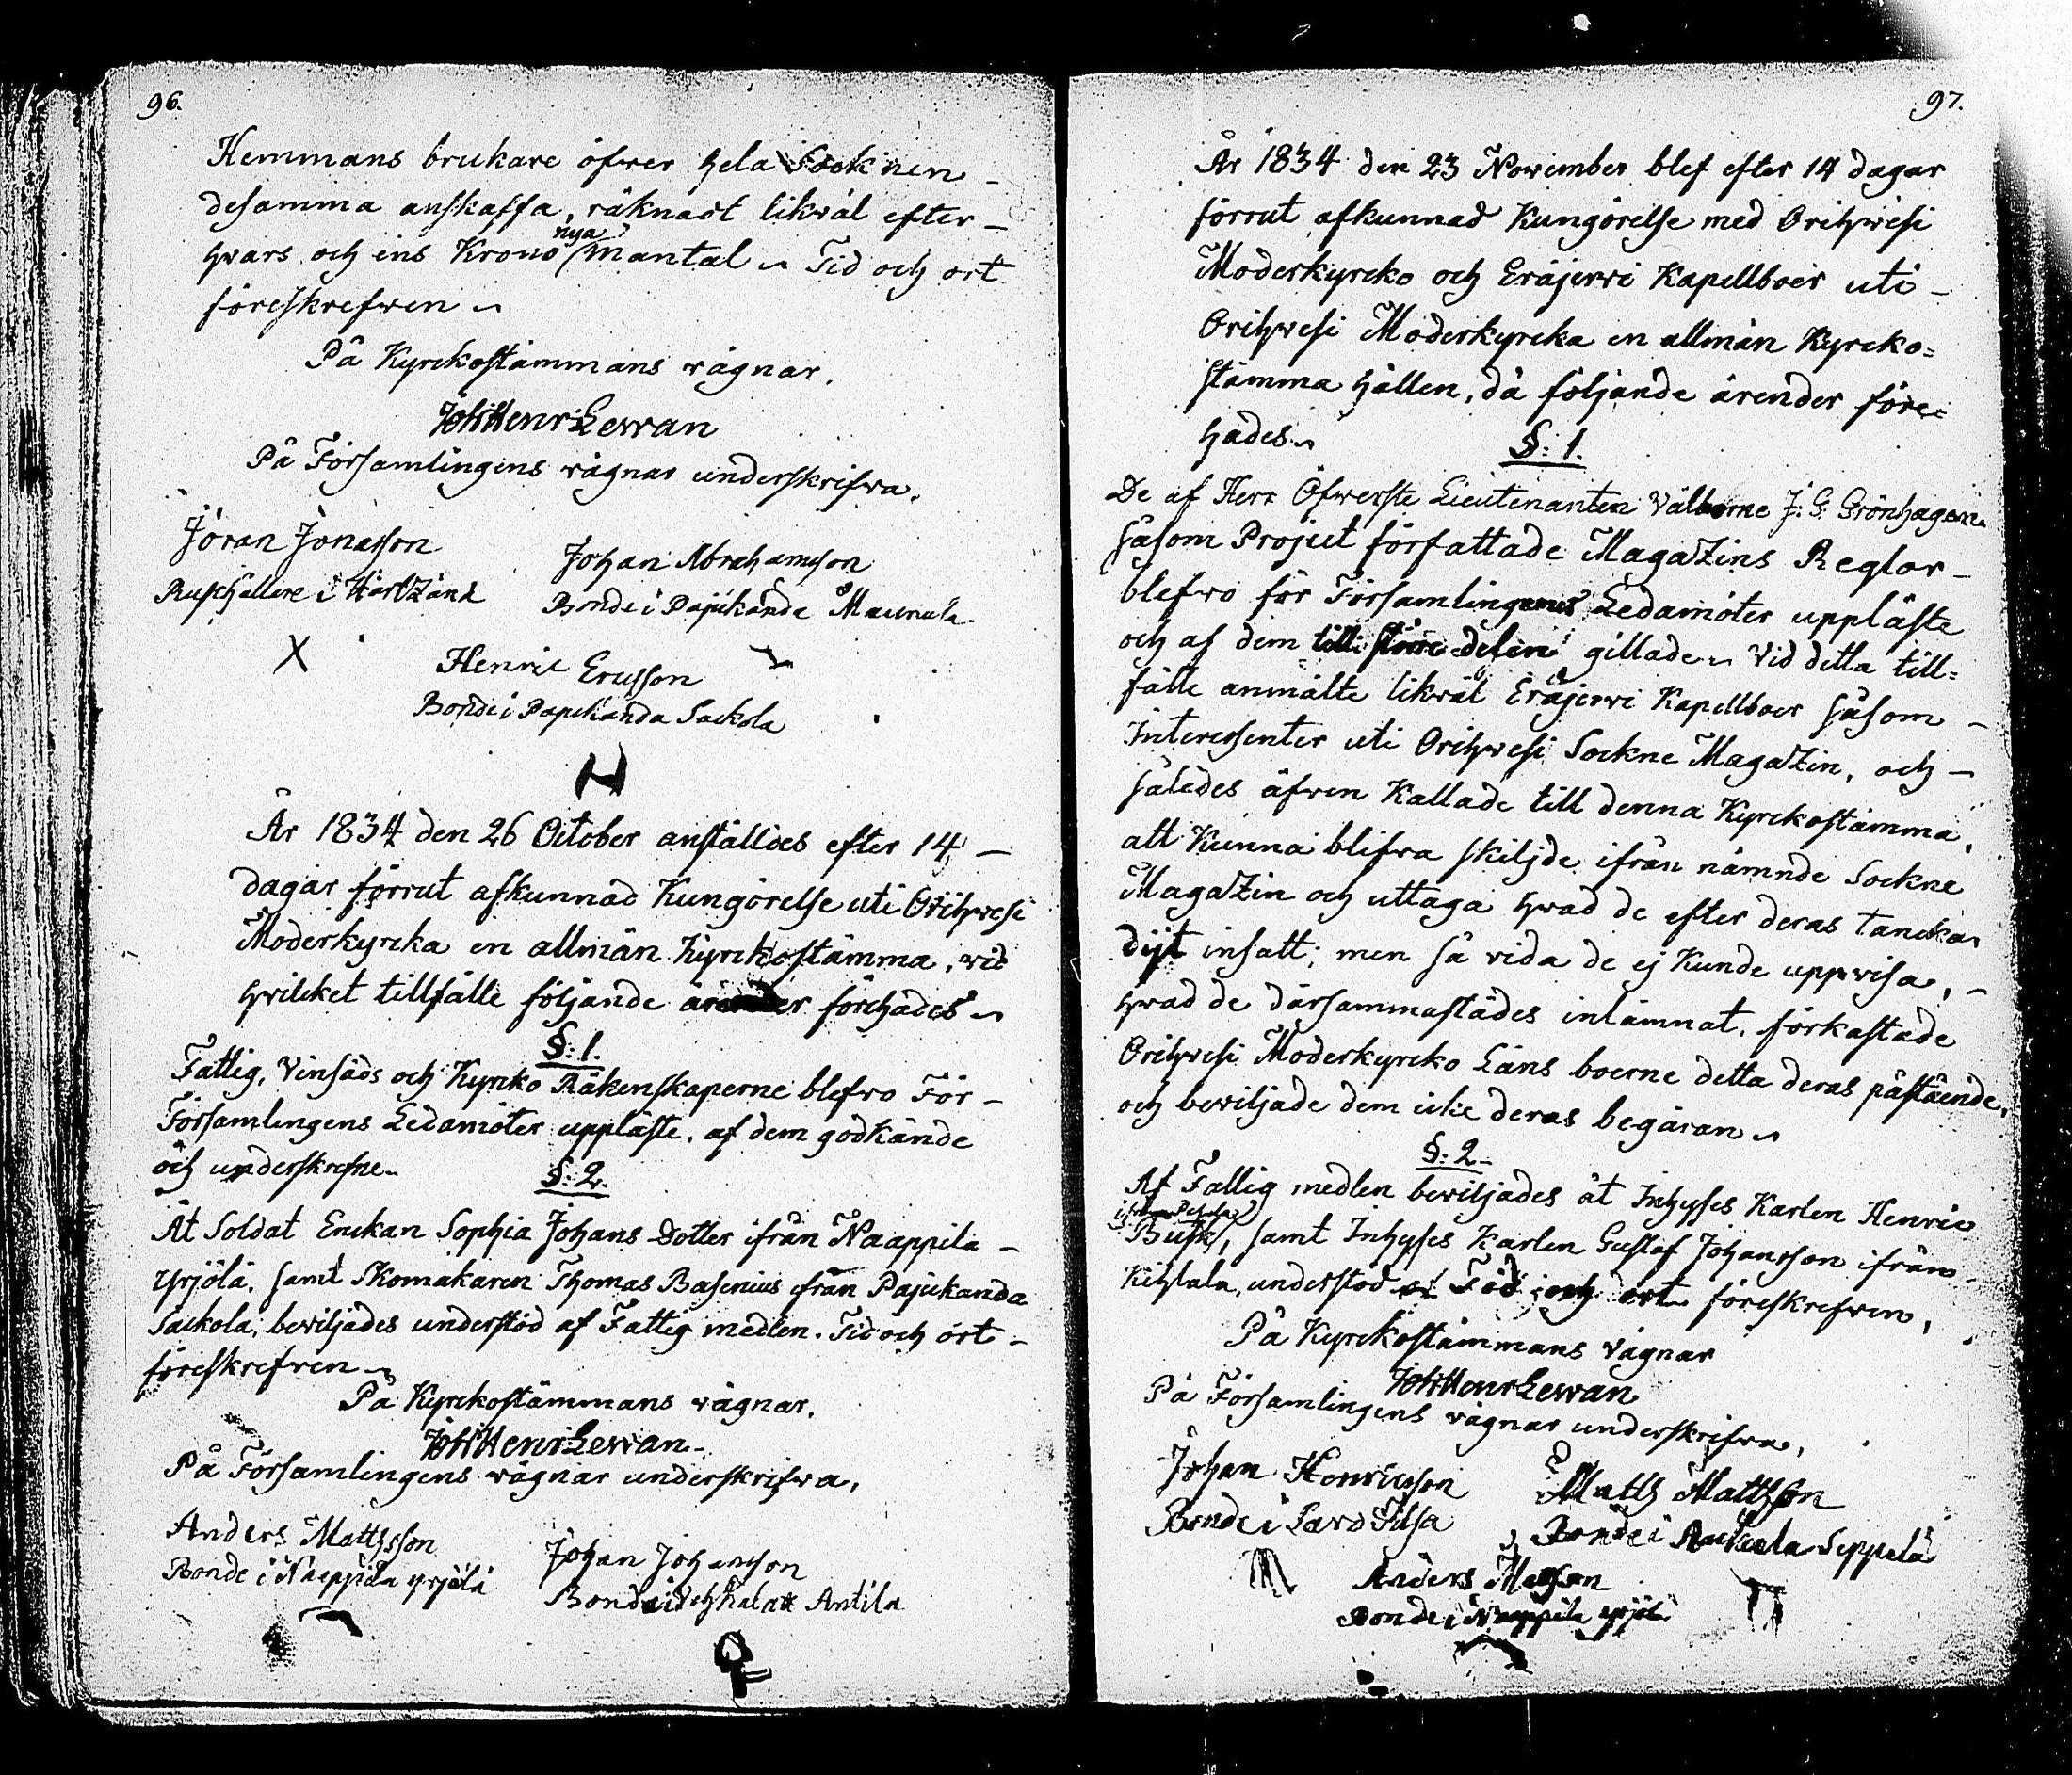 96.
Hemmans brukare öfver hela Socknen
desamma anskaffa, räknadt likväl efter
hvars och ens Krono nya mantal. Tid och ort
föreskrefven
På Kyrckostämmans vägnar.
Joh: Henr: Levan
På Församlingens vägnar underskrifva.
Jöran Jonasson
Johan Abrahamsson
Rusthållare i
Bonde i Pajukanda Maunula
X
Henric Ericsson
Bonde i Pajukanda Sackola
År 1834 den 26 October anställdes efter 14
dagar förrut afkunnad Kungörelse uti Orihvesi
Moderkyrcka en allmän Kyrckostämma, vid
hvilcket tillfälle följande ärender förehades
§: 1.
Fattig, Vinsäds och Kyrcko Räkenskaperne blefvo För
Församlingens Ledamöter uppläste, af dem godkände
och underskrefne.
§: 2.
Åt Soldat Enckan Sophia Johans Dotter ifrån Naappila
Yrjölä, samt Skomakaren Thomas Basenius från Pajukanda
Sackola, beviljades understöd af Fattig medlen. Tid och ort
föreskrefven
På Kyrckostämmans vägnar.
Joh: Henr: Levan
På Församlingens vägnar underskrifva.
Anders Mattsson
Johan Johansson
Bonde i Naappila Yrjölä
Bonde i Antila
97.
År 1834 den 23 November blef efter 14 dagar
förrut afkunnad Kungörelse med Orihvesi
Moderkyrcko och Eräjervi Kapellboer uti
Orihvesi Moderkyrcka en allmän Kyrcko=
stämma hållen, då följande ärender före=
hades
§: 1.
De af Herr Öfverste Lieutenanten Välborne J: G: Grönhagen
såsom Project författade Magazins Reglor
blefvo för Församlingens Ledamöter uppläste
och af dem till större delen gillade. Vid detta till=
fälle anmälte likväl Eräjervi Kapellboer såsom
Interessenter uti Orihvesi Sockne Magazin, och
således äfven Kallade till denna Kyrckostämma,
att Kunna blifva skiljde ifrån nämnde Sockne
Magazin och uttaga hvad de efter deras tanckar
dijt insatt; men så vida de ej Kunde uppvisa,
hvad de därsammastädes inlämnat, förkastade
Orihvesi Moderkyrcko Läns boerne detta deras påstående,
och beviljade dem icke deras begäran
§: 2
Af Fattig medlen beviljades åt Inhyses Karlen Henric
Busk, samt Inhyses Karlen Gustaf Johansson ifrån
understöd. Tid och ort föreskrefven,
På Kyrckostämmans vägnar
Joh: Henr: Levan
På Församlingens vägnar underskrifva,
Johan Henricsson
Matts Mattsson
Bonde i
Bonde i Seppälä
Anders
Bonde i Naappila Yrjölä